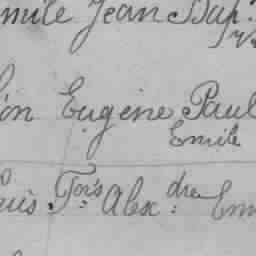 mile Jean Bap.
éon Eugène Paul
Emile
ouis Fois Alex dre Em